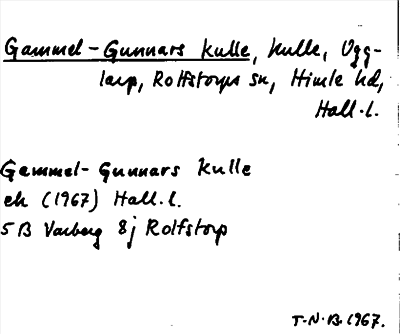 Gammel-Gunnars kulle, kulle, Ugg-
larp, Rolfstorps sn, Himle hd,
Hall.l.
Gammel-Gunnars kulle
ek (1967) Hall.l.
5 B Varberg 8j Rolfstorp
T-N.B. 1967.